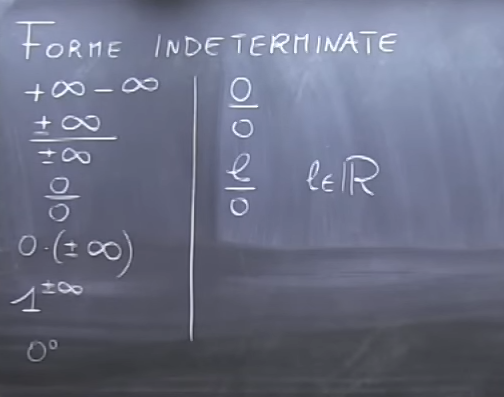 FORME INDETERMINATE
+∞ - ∞
±∞/±∞
0/0
0·(±∞)
1^±∞
0⁰
0/0
ℓ/0 ℓ∈ℝ